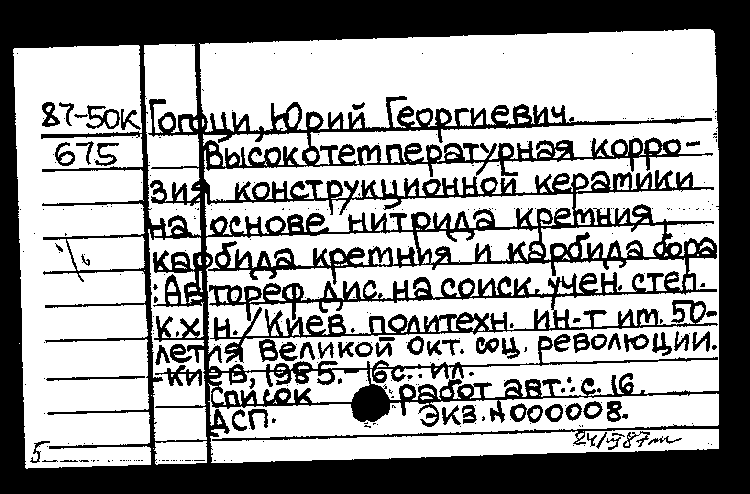 87-50К Гогоци, Юрий Георгиевич.
675 Высокотемпературная корро-
зия конструкционной керамики
на основе нитрида кремния,
карбида кремния и карбида бора
: Автореф. дис. на соиск. учен. степ.
к.х.н. / Киев. политехн. ин-т им. 50-
летия Великой Окт. соц. революции.
- Киев, 1985. - 16с.: ил.
Список работ авт.: с. 16.
ДСП. Экз. N 000008.
5